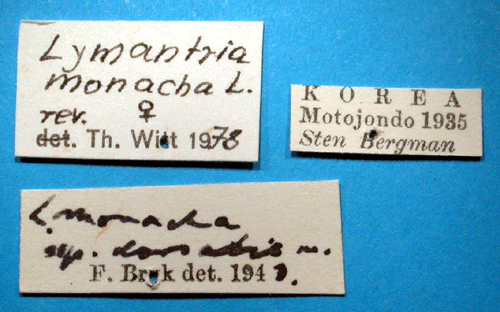 Lymantria
monacha L.
rev. ♀
det. Th. Witt 1978
KOREA
Motojondo 1935
Sten Bergman
L. monacha
ssp. dorsalis m.
F. Bryk det. 194